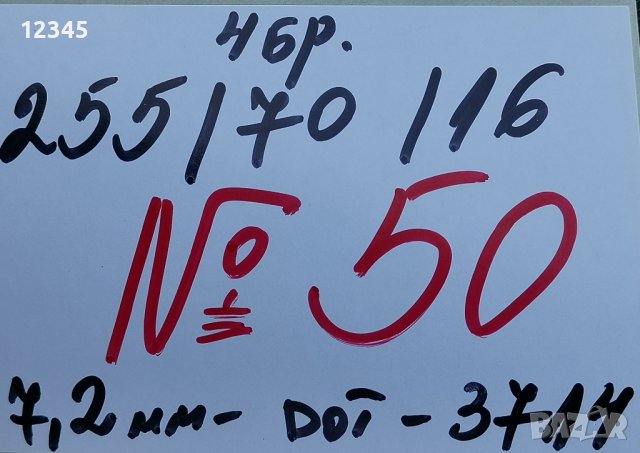 12345
4бр.
255/70/16
№ 50
7,2мм- DOT - 3714
BAZAR